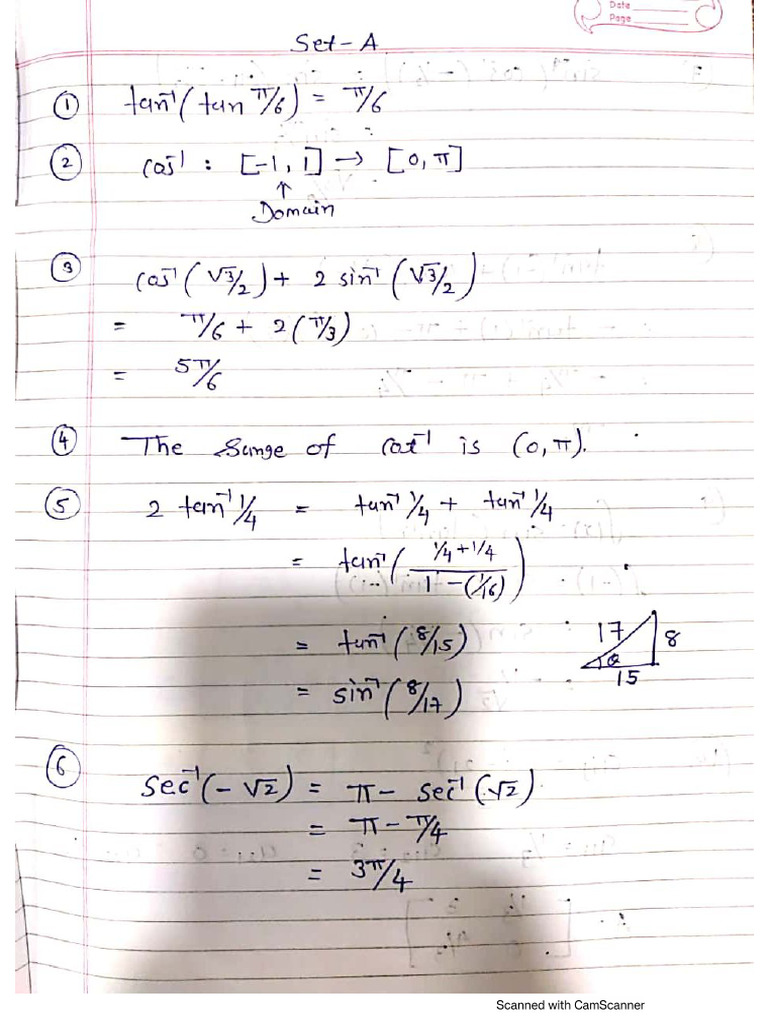 Date
Page
Set-A
① tan⁻¹(tan π/6) = π/6
② cos⁻¹ : [-1, 1] → [0, π]
↑
Domain
③ cos⁻¹(√3/2) + 2 sin⁻¹(√3/2)
= π/6 + 2(π/3)
= 5π/6
④ The range of cot⁻¹ is (0, π).
⑤ 2 tan⁻¹ 1/4 = tan⁻¹ 1/4 + tan⁻¹ 1/4
= tan⁻¹( (1/4 + 1/4) / (1 - (1/16)) )
= tan⁻¹(8/15)
17 8
θ
15
= sin⁻¹(8/17)
⑥ sec⁻¹(-√2) = π - sec⁻¹(√2)
= π - π/4
= 3π/4
Scanned with CamScanner